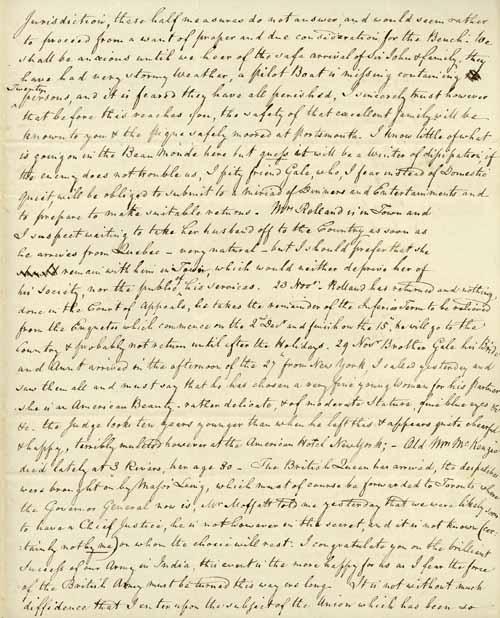 Jurisdiction, these half measures do not answer, and would seem rather
to proceed from a want of proper and due consideration for the Bench. We
shall be anxious until we hear of the safe arrival of Sir John & family. they
have had very stormy Weather, a pilot Boat is missing containing
Twenty
persons, and it is feared they have all perished, I sincerely trust however
that before this reaches you, the safety of that excellent family will be
known to you & the Pique safely moored at Portsmouth. I know little of what
is going on in the Beau Monde here but guess it will be a Winter of dissipation if
the enemy does not trouble us, I pity friend Gale, who, I fear instead of Domestic
quiet, will be obliged to submit to a round of Dinners and Entertainments and
to prepare to make suitable returns. Mrs Rolland is in Town and
I suspect waiting to take her husband off to the Country as soon as
he arrives from Quebec - very natural - but I should prefer that she
remain with him in Town, which would neither deprive her of
his Society nor the public of his services. 23 Novr. Rolland has returned and nothing
done in the Court of Appeals, he takes the remainder of the Inferior Term to be relieved
from the Enquetes which commence on the 2d Decr and finish on the 15, he will go to the
Country & probably not return until after the Holidays. 29 Novr Brother Gale his Bride
and Aunt arrived in the afternoon of the 27 from New York, I called yesterday and
saw them all and must say that he has chosen a very fine young Woman for his partner
she is an American Beauty - rather delicate, & of moderate Stature, fine blue eyes &c
&c. the Judge looks ten years younger than when he left this & appears quite cheerful
& happy, terribly mulcted however at the American Hotel New York; - Old Mrs McKenzie
died lately at 3 Rivers, her age 80 - The British Queen has arrived, the despatches
were brought on by Major Ling, which must of course be forwarded to Toronto where
the Governor General now is. Mr Moffatt told me yesterday that we were likely soon
to have a Chief Justice, he is not however in the secret, and it is not known (cer
tainly not by me) on whom the choice will rest. I congratulate you on the brilliant
Success of our Army in India, this event is the more happy for us as I fear the force
of the British Army must be turned this way ere long. It is not without much
diffidence that I enter upon the subject of the Union which has been so